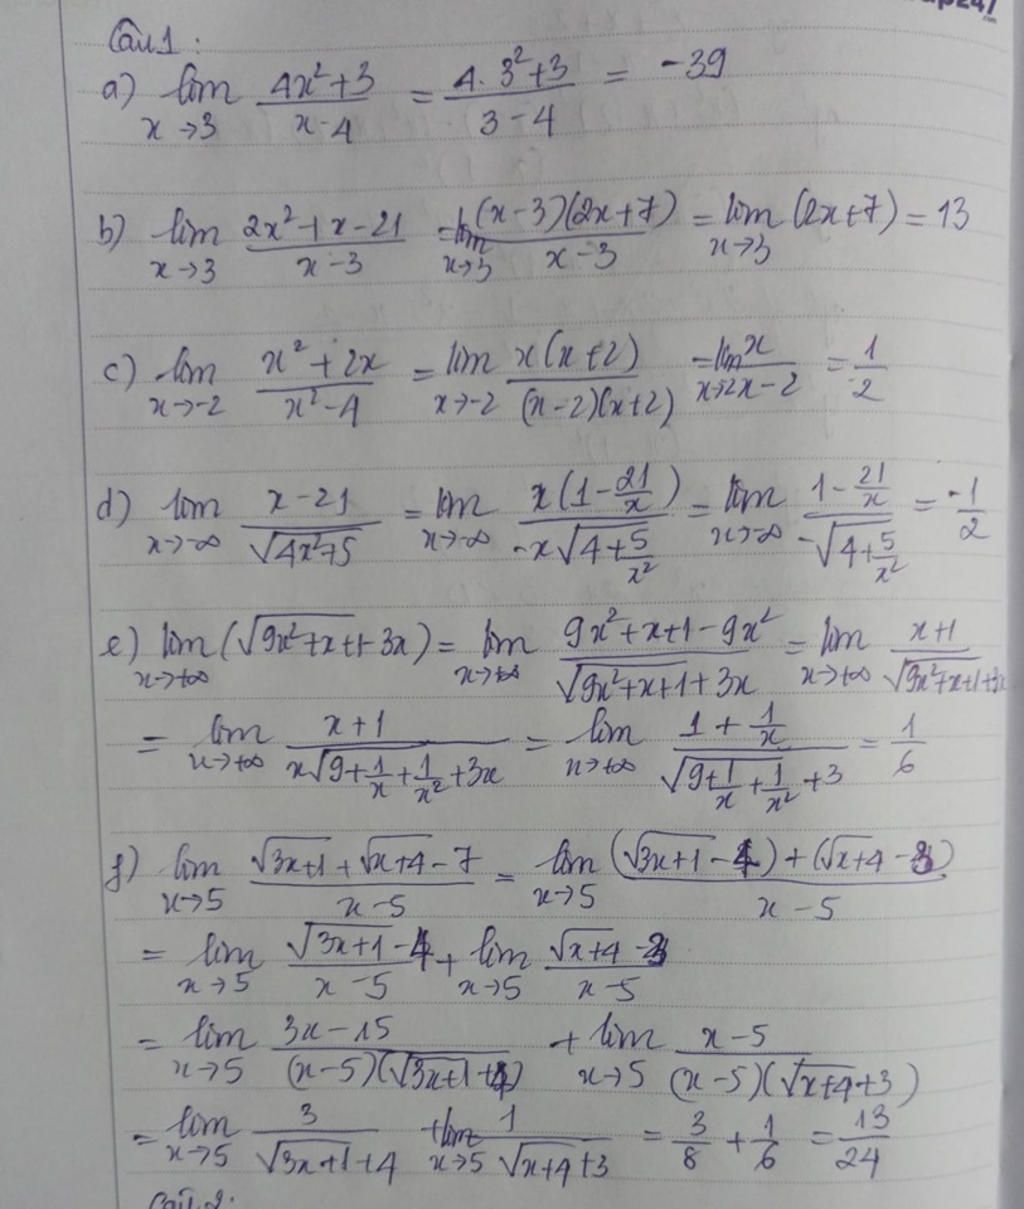 Câu 1:
a) lim x→3 (4x²+3)/(x-4) = (4.3²+3)/(3-4) = -39
b) lim x→3 (2x²+x-21)/(x-3) = lim x→3 ((x-3)(2x+7))/(x-3) = lim x→3 (2x+7) = 13
c) lim x→-2 (x²+2x)/(x²-4) = lim x→-2 (x(x+2))/((x-2)(x+2)) = lim x→2 x/(x-2) = 1/2
d) lim x→-∞ (x-21)/√(4x²+5) = lim x→-∞ (x(1-21/x))/(-x√(4+5/x²)) = lim x→-∞ (1-21/x)/(-√(4+5/x²)) = -1/2
e) lim x→+∞ (√(9x²+x+1)-3x) = lim x→+∞ (9x²+x+1-9x²)/(√(9x²+x+1)+3x) = lim x→+∞ (x+1)/(√(9x²+x+1)+3x)
= lim x→+∞ (x+1)/(x√(9+1/x+1/x²)+3x) = lim x→+∞ (1+1/x)/(√(9+1/x+1/x²)+3) = 1/6
f) lim x→5 (√(3x+1)+√(x+4)-7)/(x-5) = lim x→5 ((√(3x+1)-4)+(√(x+4)-3))/(x-5)
= lim x→5 (√(3x+1)-4)/(x-5) + lim x→5 (√(x+4)-3)/(x-5)
= lim x→5 (3x-15)/((x-5)(√(3x+1)+4)) + lim x→5 (x-5)/((x-5)(√(x+4)+3))
= lim x→5 3/(√(3x+1)+4) + lim x→5 1/(√(x+4)+3) = 3/8 + 1/6 = 13/24
Câu 2: